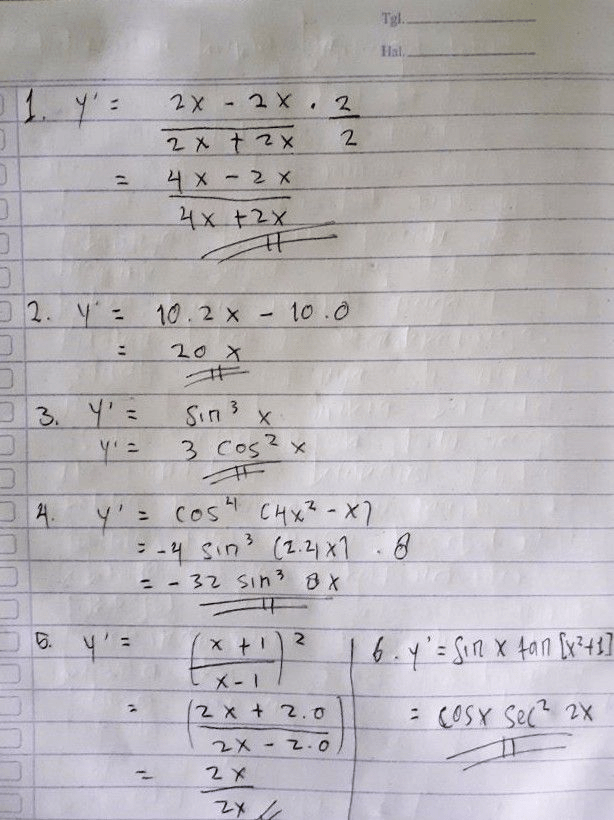 Tgl.
Hal.
1. y' = (2x - 2x)/(2x + 2x) . 2/2
= (4x - 2x)/(4x + 2x)
2. y' = 10.2x - 10.0
= 20 x
3. y' = sin³ x
y' = 3 cos² x
4. y' = cos⁴ (4x² - x)
= -4 sin³ (2.4x) . 8
= -32 sin³ 8x
5. y' = ((x + 1)/(x - 1))²
= ((2x + 2.0)/(2x - 2.0))
= 2x/2x
6. y' = sin x tan [x²+1]
= cosx sec² 2x